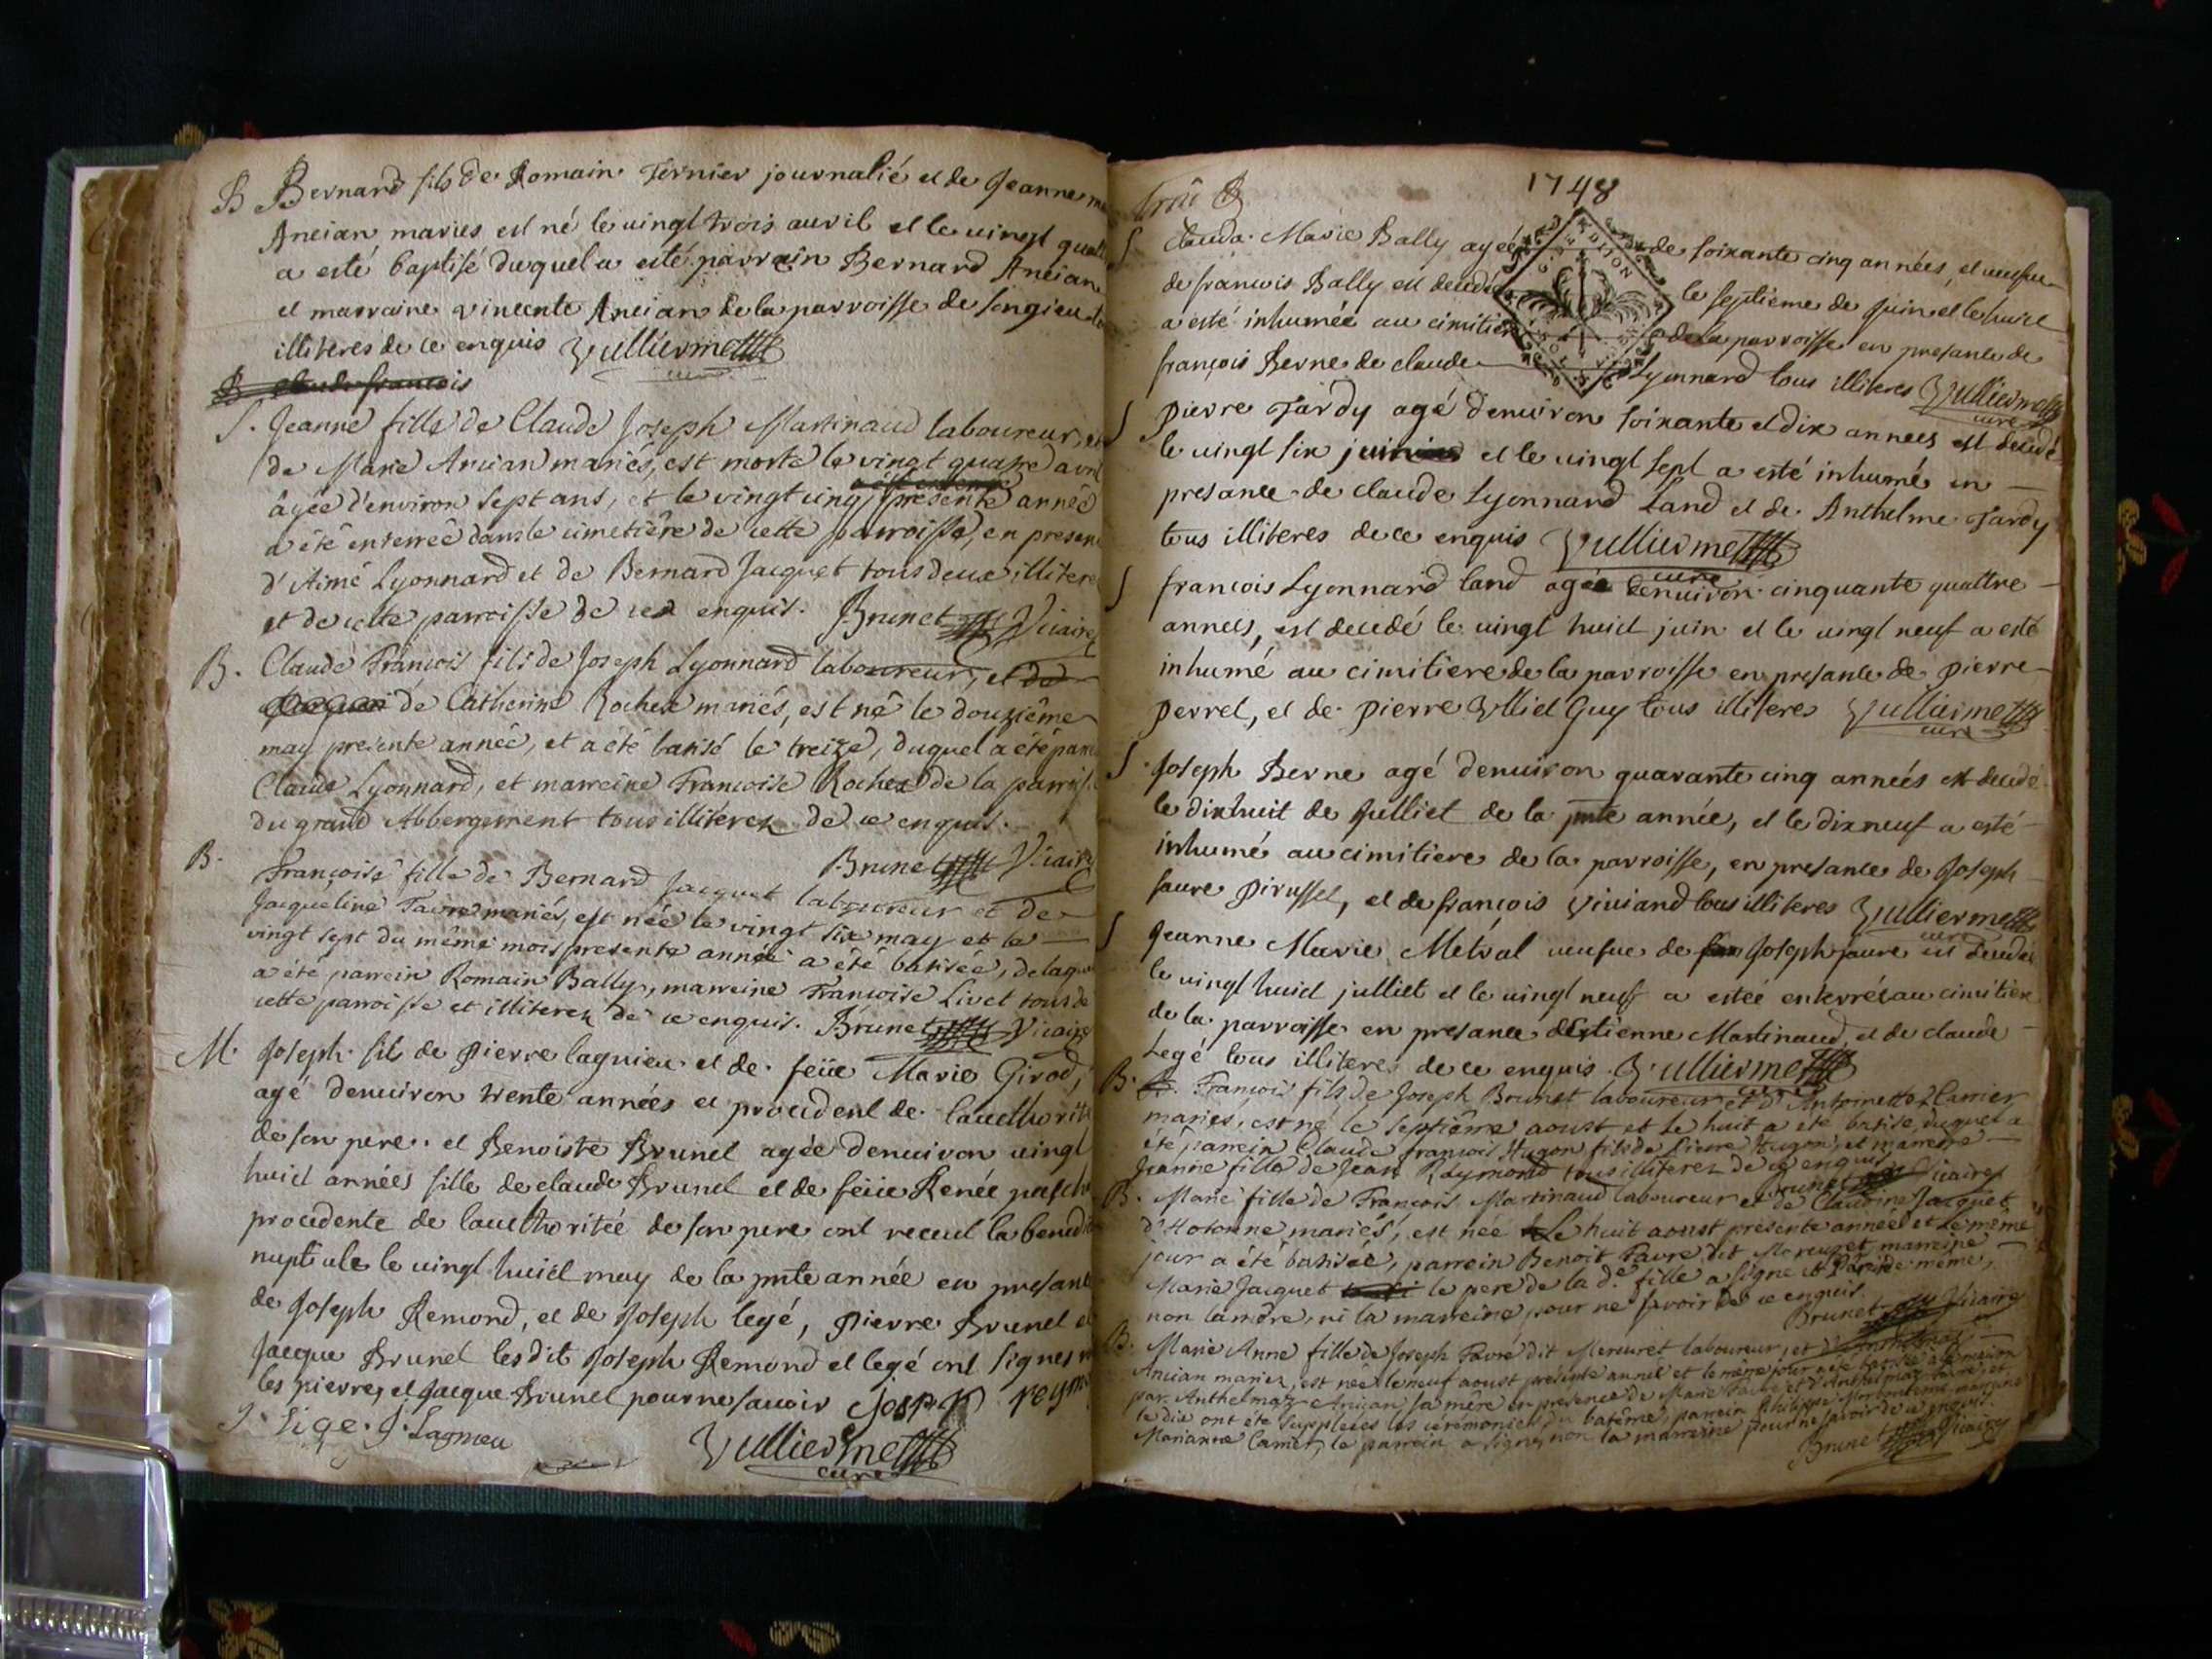 B Bernard fils de Romain Ternier journalié et de Jeanne
Ancian mariés est né le vingt trois auvril et le vingt quatt
a esté baptisé duquel a esté parrain Bernard Ancian
et marraine vincente Ancian de la parroisse de songieu
illiteres de ce enquis Vulliermet
curé
B claude francois
S. Jeanne fille de Claude Joseph Martinaud laboureur, et
de Marie Ancian mariés, est morte le vingt quatre avril
âgée d'environ sept ans, et le vingt cinq presente année
a été enterrée dans le cimetière de cette parroisse, en presen
d'Aimé Lyonnard et de Bernard Jacquet tous deux illitere
et de cette parroisse de ce enquis. Brunet Vicaire
B. Claude François fils de Joseph Lyonnard laboureur, et de
de Catherine Rochex mariés, est né le douzième
may presente année, et a été batisé le treize, duquel a été parr
Claude Lyonnard, et marreine Françoise Rochex de la parroiss
du grand Abbergement tous illiterez de ce enquis.
Brunet Vicaire
B. Françoise fille de Bernard Jacquet laboureur et de
Jacqueline Favre mariés, est née le vingt six may et le
vingt sept du même mois presente année a été batisée, de laqu
a été parrein Romain Bally, marreine Françoise Livet tous de
cette parroisse et illiterez de ce enquis. Brunet Vicaire
M. Joseph fils de pierre lagnieu et de feüe Marie Girod,
agé denuiron trente années et procedent de lautthorité
de son pere et Benoiste Brunet agée denuiron vingt
huict années fille de claude Brunet et de feüe Renée
procedente de lautthoritée de son pere ont receut la bened
nuptiale le vingt huict may de la pnte année en presanc
de Joseph Remond, et de Joseph legé, pierre Brunet et
Jacque Brunet lesdit Joseph Remond et legé ont signes
les pierre, et Jacque Brunet pour ne sauoir Josep reymo
J. Lige. J. Lagnieu
Vulliermet
curé
1748
S Clauda Marie Bally agée de soixante cinq années, et ueufue
de francois Bally est decedé le septieme de juin et le huict
a esté inhumée au cimitier de la parroisse en presance de
françois Berne de claude Lyonnard tous illiteres Vulliermet
curé
S pierre Tardy agé denuiron soixante et dix années est decedé
le vingt six juin et le vingt sept a esté inhumé en
presance de claude Lyonnard Land et de Anthelme Tardy
tous illiteres de ce enquis Vulliermet
curé
S francois Lyonnard land agé denuiron cinquante quattre
années, est decedé le vingt huict juin et le vingt neuf a esté
inhumé au cimitiere de la parroisse en presance de pierre
perret, et de pierre Vlliet Guy tous illiteres Vulliermet
curé
S Joseph Berne agé denuiron quarante cinq années est decedé
le dixhuit de Julliet de la pnte année, et le dixneuf a esté
inhumé au cimitiere de la parroisse, en presance de Joseph
faure pirusset, et de françois viuiand tous illiteres Vulliermet
curé
S Jeanne Marie Métral ueufue de Joseph faure est decedée
le vingt huict julliet et le vingt neuf a estée enterrée au cimitiere
de la parroisse en presance d'Estienne Martinaud, et de claude
Legé tous illiteres de ce enquis. Vulliermet
curé
B. François fils de Joseph Brunet laboureur et d'Antoinette Carrier
mariés, est né le septième aoust et le huit a été batisé, duquel a
été parrein Claude françois Hugon fils de Pierre Hugon, et marreine
Jeanne fille de Jean Raymond tous illiterez de ce enquis
Brunet Vicaire
B. Marie fille de François Martinaud laboureur et de Claudine Jacquet
d'Hotonne mariés, est née Le huit aoust présente année et le même
jour a été batisée, parrein Benoit Favre dit Mercuret marreine
Marie Jacquet le pere de la de fille a signé de même,
non la mère, ni la marreine pour ne savoir de ce enquis.
Brunet Vicaire
B. Marie Anne fille de Joseph Favre dit Mercuret laboureur, et
Ancian mariez, est née le neuf aoust présente année et le même jour a été batisée à la maison
par Anthelmaz Ancian sa mère en présence de Marie
le dix ont été suppléées les cérémonies du batême, parrein Philippe marreine
Marianne Carrier, le parrein a signé, non la marreine pour ne savoir de ce enquis.
Brunet Vicaire